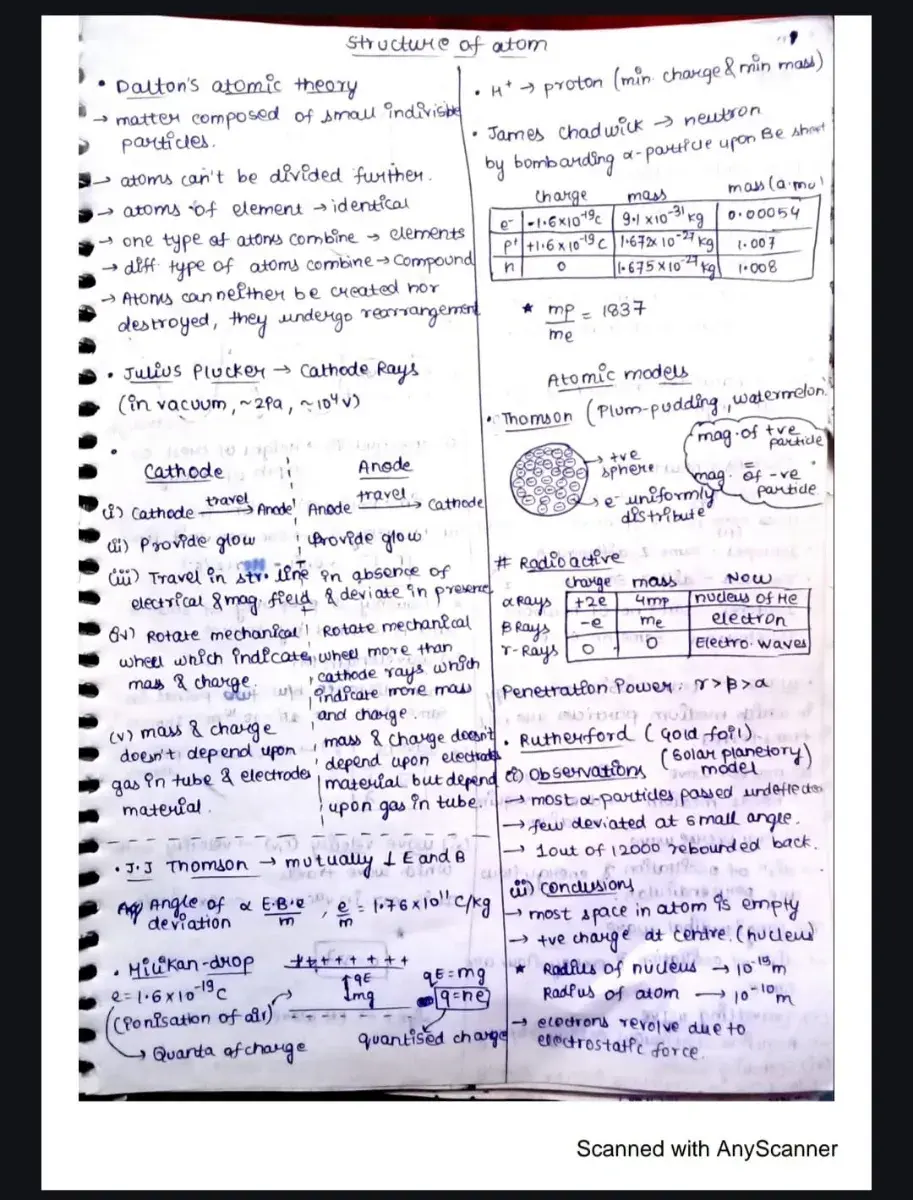 Structure of atom
• Dalton's atomic theory
→ matter composed of small indivisible
particles.
→ atoms can't be divided further.
→ atoms of element → identical
→ one type of atoms combine → elements
→ diff. type of atoms combine → Compound
→ Atoms can neither be created nor
destroyed, they undergo rearrangement
• Julius Plucker → Cathode Rays
(in vacuum, ~2Pa, ~10⁴v)
•
Cathode Anode
(i) Cathode travel → Anode Anode travel → Cathode
(ii) Provide glow Provide glow
(iii) Travel in str. line in absence of
electrical & mag. field & deviate in presence
(iv) Rotate mechanical Rotate mechanical
wheel which indicate wheel more than
mass & charge. cathode rays which
indicate more mass
and charge.
(v) mass & charge mass & charge doesn't
doesn't depend upon depend upon electrode
gas in tube & electrodes material but depend
material. upon gas in tube.
• J.J Thomson → mutually ⊥ E and B
Angle of deviation ∝ E.B.e/m , e/m = 1.76 x 10¹¹ C/kg
• Milikan-drop + + + + + + +
e = 1.6 x 10⁻¹⁹ C ↑qE ↓mg qE = mg
q = ne
(ionisation of air) - - - - - -
→ Quanta of charge quantised charge
• H⁺ → proton (min. charge & min mass)
• James Chadwick → neutron
by bombarding α-particle upon Be sheet
charge mass mass (a.mu)
e⁻ -1.6x10⁻¹⁹c 9.1 x10⁻³¹ kg 0.00054
p⁺ +1.6 x 10⁻¹⁹ C 1.672x 10⁻²⁷ kg 1.007
n 0 1.675x10⁻²⁷ kg 1.008
★ mp/me = 1837
Atomic models
• Thomson (Plum-pudding, watermelon)
→ +ve
sphere
→ e⁻ uniformly
distribute
mag. of +ve
particle
=
mag. of -ve
particle
# Radioactive
charge mass Now
α Rays +2e 4mp nucleus of He
β Rays -e me electron
γ-Rays 0 0 Electro. waves
Penetration Power: γ > β > α
• Rutherford (Gold foil)
(Solar planetory)
model
(i) Observations
→ most α-particles passed undeflected
→ few deviated at small angle.
→ 1 out of 12000 rebounded back.
(ii) Conclusions
→ most space in atom is empty
→ +ve charge at centre. (nucleus)
★ Radius of nucleus → 10⁻¹⁵m
Radius of atom → 10⁻¹⁰m
→ electrons revolve due to
electrostatic force.
Scanned with AnyScanner